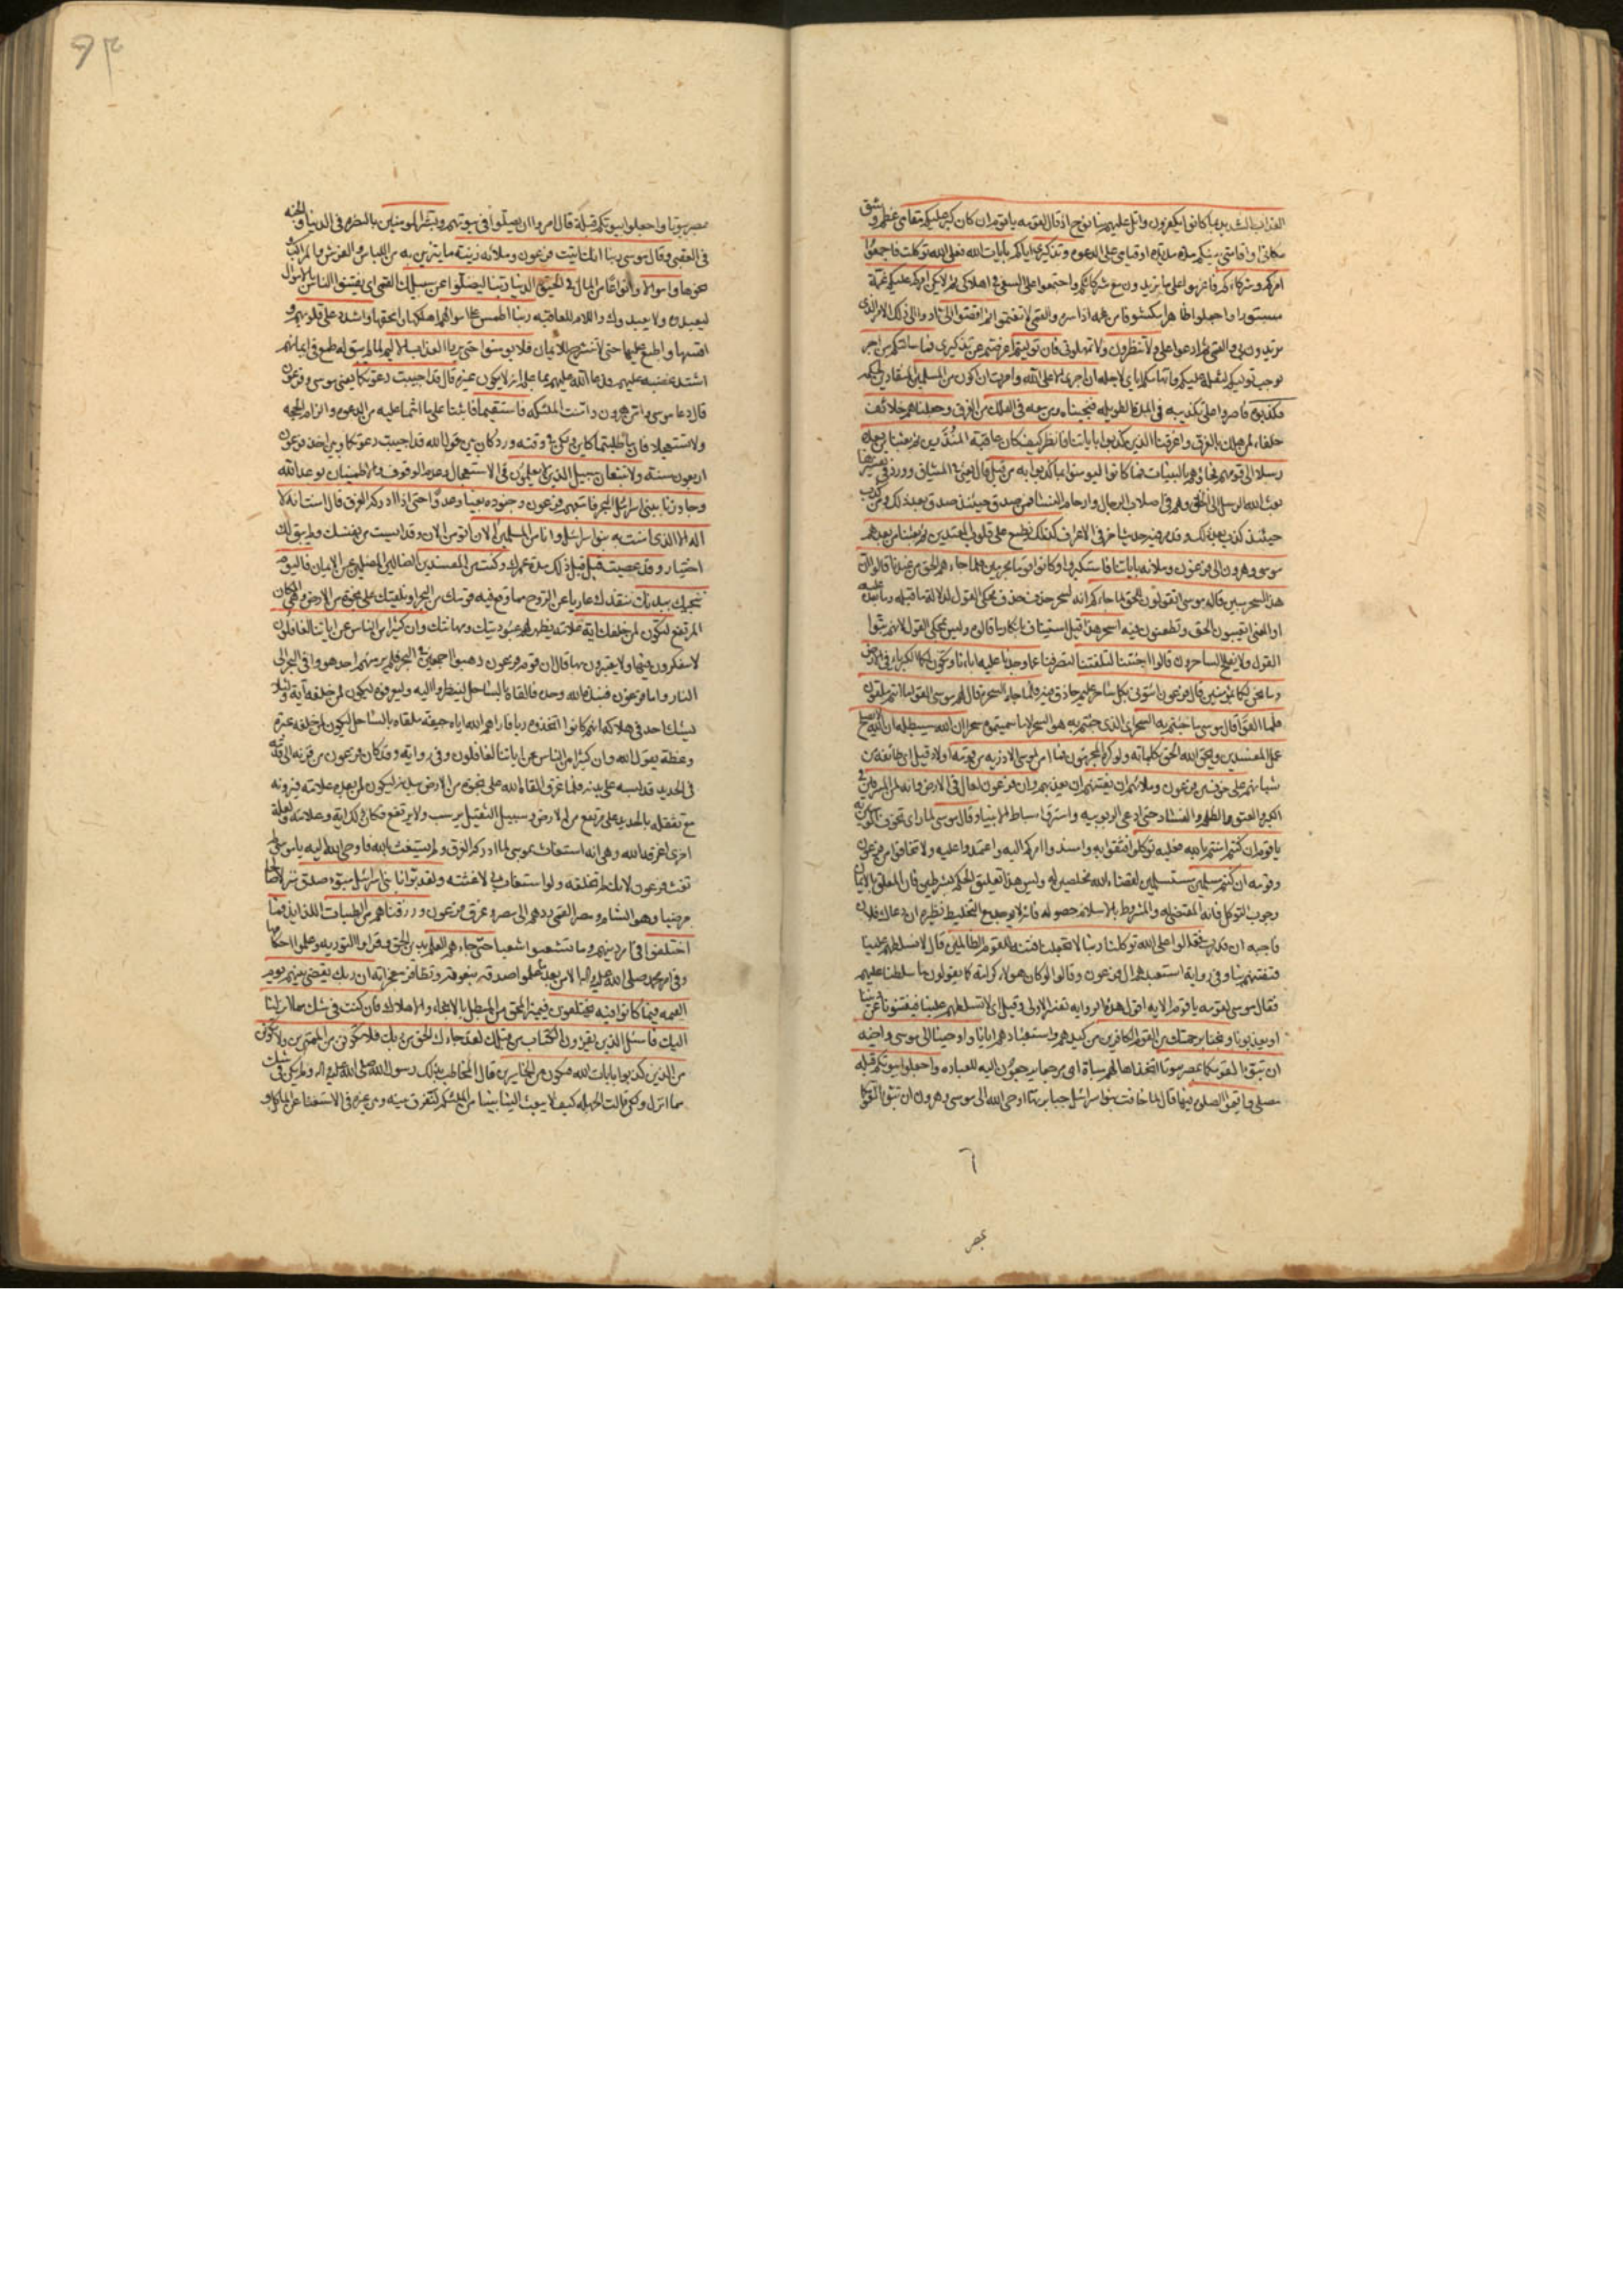 العذاب الشديد بما كانوا يكفرون واتل عليهم نبأ نوح اذ قال لقومه يا قوم ان كان كبر عليكم مقامي عظم وشق
مكاني او اقامتي بينكم مدة مديدة او قيامي على الدعوة وتذكيري اياكم بايات الله فعلى الله توكلت فاجمعوا
امركم وشركاءكم فاعزموا على ما تريدون مع شركائكم واجتمعوا على السعي في اهلاكي ثم لا يكن امركم عليكم غمة
مستورا واجعلوا ظاهرا مكشوفا من غمه اذا ستره والقمي لا تغتموا ثم اقضوا الي ادوا الي ذلك الامر الذي
تريدون بي والقمي ثم ادعوا علي ولا تنظرون ولا تمهلوني فان توليتم اعرضتم عن تذكيري فما سالتكم من اجر
يوجب توليكم لثقله عليكم واتهامكم اياي لاجله ان اجري الا على الله وامرت ان اكون من المسلمين المنقادين لحكمه
فكذبوه فاصروا على تكذيبه في المدة الطويلة فنجيناه ومن معه في الفلك من الغرق وجعلناهم خلائف
خلفاء لمن هلك بالغرق واغرقنا الذين كذبوا باياتنا فانظر كيف كان عاقبة المنذرين ثم بعثنا من بعده
رسلا الى قومهم فجاؤهم بالبينات فما كانوا ليؤمنوا بما كذبوا به من قبل قال يعني في الميثاق وورد في تفسيرها
بعث الله الرسل الى الخلق وهم في اصلاب الرجال وارحام النساء فمن صدق حينئذ صدق بعد ذلك ومن كذب
حينئذ كذب بعد ذلك وقد مضى حديث اخر في الاعراف كذلك نطبع على قلوب المعتدين ثم بعثنا من بعدهم
موسى وهرون الى فرعون وملائه باياتنا فاستكبروا وكانوا قوما مجرمين فلما جاءهم الحق من عندنا قالوا ان
هذا لسحر مبين قال موسى اتقولون للحق لما جاءكم انه لسحر حذف محكي القول لدلالة ما قبله وما بعده عليه
او المعنى اتعيبون الحق وتطعنون فيه اسحر هذا قيل استيناف بانكار ما قالوه وليس بمحكي القول لانهم بتوا
القول ولا يفلح الساحرون قالوا اجئتنا لتلفتنا لتصرفنا عما وجدنا عليه اباءنا وتكون لكما الكبرياء في الارض
وما نحن لكما بمؤمنين قال فرعون ائتوني بكل ساحر عليم حاذق فيه فلما جاء السحرة قال لهم موسى القوا ما انتم ملقون
فلما القوا قال موسى ما جئتم به السحر اي الذي جئتم به هو السحر لا ما سميتموه سحرا ان الله سيبطله ان الله لا يصلح
عمل المفسدين ويحق الله الحق بكلماته ولو كره المجرمون فما امن لموسى الا ذرية من قومه اولاد قيل اي طائفة من
شبانهم على خوف من فرعون وملائهم ان يفتنهم ان يعذبهم وان فرعون لعال في الارض وانه لمن المسرفين في
الكبر والعتو والظلم والفساد حتى ادعى الربوبية واسترق اسباط الانبياء وقال موسى لما راى تخوف المؤمنين به
يا قوم ان كنتم امنتم بالله فعليه توكلوا فثقوا به واسندوا امركم اليه واعتمدوا عليه ولا تخافوا من فرعون
وقومه ان كنتم مسلمين مستسلمين لقضاء الله مخلصين له وليس هذا تعليق الحكم بشرطين فان المعلق بالايمان
وجوب التوكل فانه المقتضي له والمشروط بالاسلام حصوله فانه لا يوجد مع التخليط نظيره ان دعاك فلان
فاجبه ان قدرت فقالوا على الله توكلنا ربنا لا تجعلنا فتنة للقوم الظالمين قال لا تسلطهم علينا
فتفتنهم بنا وفي رواية استعبدهم ال فرعون وقالوا لو كان لهؤلاء كرامة كما يقولون ما سلطنا عليهم
فقال موسى لقومه يا قوم الاية اقول هذه الرواية تفسر الاولى وقيل اي لا تسلطهم علينا فيفتنونا عن ديننا
او يعذبونا ونجنا برحمتك من القوم الكافرين من كيدهم واستعبادهم ايانا واوحينا الى موسى واخيه
ان تبوءا لقومكما بمصر بيوتا اتخذاها لهم مباءة اي مرجعا يرجعون اليه للعبادة واجعلوا بيوتكم قبلة
مصلى واقيموا الصلوة فيها قال لما خافت بنو اسرائيل جبابرتها اوحى الله الى موسى وهرون ان تبوءا لقومكما
٦
بمصر
٩٣
بمصر بيوتا واجعلوا بيوتكم قبلة قال امروا ان يصلوا في بيوتهم وبشر المؤمنين بالنصر في الدنيا والجنة
في العقبى وقال موسى ربنا انك اتيت فرعون وملائه زينة ما يتزين به من اللباس والفرش والمراكب و
نحوها واموالا وانواعا من المال في الحيوة الدنيا ربنا ليضلوا عن سبيلك القمي اي يفتنوا الناس بالاموال
ليعبدوه ولا يعبدوك واللام للعاقبة ربنا اطمس على اموالهم اهلكها وامحقها واشدد على قلوبهم و
اقسها واطبع عليها حتى لا تنشرح للايمان فلا يؤمنوا حتى يروا العذاب الاليم لما لم يبق له طمع في ايمانهم
اشتد غضبه عليهم فدعا الله عليهم بما علم انه لا يكون غيره قال قد اجيبت دعوتكما يعني موسى وفرعون
قال دعا موسى وامن هرون وامنت الملئكة فاستقيما فاثبتا على ما انتما عليه من الدعوة والزام الحجة
ولا تستعجلا فان ما طلبتما كاين ولكن في وقته ورد كان بين قول الله قد اجيبت دعوتكما وبين اخذ فرعون
اربعون سنة ولا تتبعان سبيل الذين لا يعلمون في الاستعجال وعدم الوقوف والاطمينان بوعد الله
وجاوزنا ببني اسرائيل البحر فاتبعهم فرعون وجنوده بغيا وعدوا حتى اذا ادركه الغرق قال امنت انه لا
اله الا الذي امنت به بنو اسرائيل وانا من المسلمين الان اتؤمن الان وقد ايست من نفسك ولم يبق لك
اختيار وقد عصيت قبل قبل ذلك مدة عمرك وكنت من المفسدين الضالين المضلين عن الايمان فاليوم
ننجيك ببدنك ننقذك عاريا عن الروح مما وقع فيه قومك من البحر او نلقيك على نجوة من الارض وهي المكان
المرتفع لتكون لمن خلفك اية علامة يظهر لهم عبوديتك ومهانتك وان كثيرا من الناس عن اياتنا لغافلون
لا يتفكرون فيها ولا يعتبرون بها قال ان قوم فرعون ذهبوا اجمعين في البحر فلم ير منهم احد هووا في البحر الى
النار واما فرعون فنبذه الله وحده فالقاه بالساحل لينظروا اليه وليعرفوه ليكون لمن خلفه اية ولئلا
يشك احد في هلاكه انهم كانوا اتخذوه ربا فاراهم الله اياه جيفة ملقاة بالساحل ليكون لمن خلفه عبرة
وعظة يقول الله وان كثيرا من الناس عن اياتنا لغافلون وفي رواية وقد كان فرعون من قرنه الى قدمه
في الحديد قد لبسه على بدنه فلما غرق القاه الله على نجوة من الارض ببدنه ليكون لمن بعده علامة فيرونه
مع تثقله بالحديد على مرتفع من الارض وسبيل الثقيل يرسب ولا يرتفع فكان ذلك اية وعلامة ولعلة
اخرى اغرقه الله وهي انه استغاث بموسى لما ادركه الغرق ولم يستغث بالله فاوحى الله اليه يا موسى لم
تغث فرعون لانك لم تخلقه ولو استغاث بي لاغثته ولقد بوانا بني اسرائيل مبوء صدق منزلا صالحا
مرضيا وهو الشام ومصر القمي ردهم الى مصر وغرق فرعون ورزقناهم من الطيبات اللذايذ فما
اختلفوا في امر دينهم وما تشعبوا شعبا حتى جاءهم العلم بدين الحق وقراوا التورية وعلموا احكامها
وفي امر محمد صلى الله عليه واله الا من بعد ما علموا صدقه بنعوته وتظافر معجزاته ان ربك يقضي بينهم يوم
القيمة فيما كانوا فيه يختلفون فيميز المحق من المبطل بالانجاء والاهلاك فان كنت في شك مما انزلنا
اليك فاسئل الذين يقرؤن الكتاب من قبلك لقد جاءك الحق من ربك فلا تكونن من الممترين ولا تكونن
من الذين كذبوا بايات الله فتكون من الخاسرين قال المخاطب بذلك رسول الله صلى الله عليه واله ولم يكن في شك
مما انزل ولكن قالت الجهلة كيف لا يبعث الينا نبيا من الملئكة لتفرق بينه وبين غيره في الاستغناء عن الماكل و